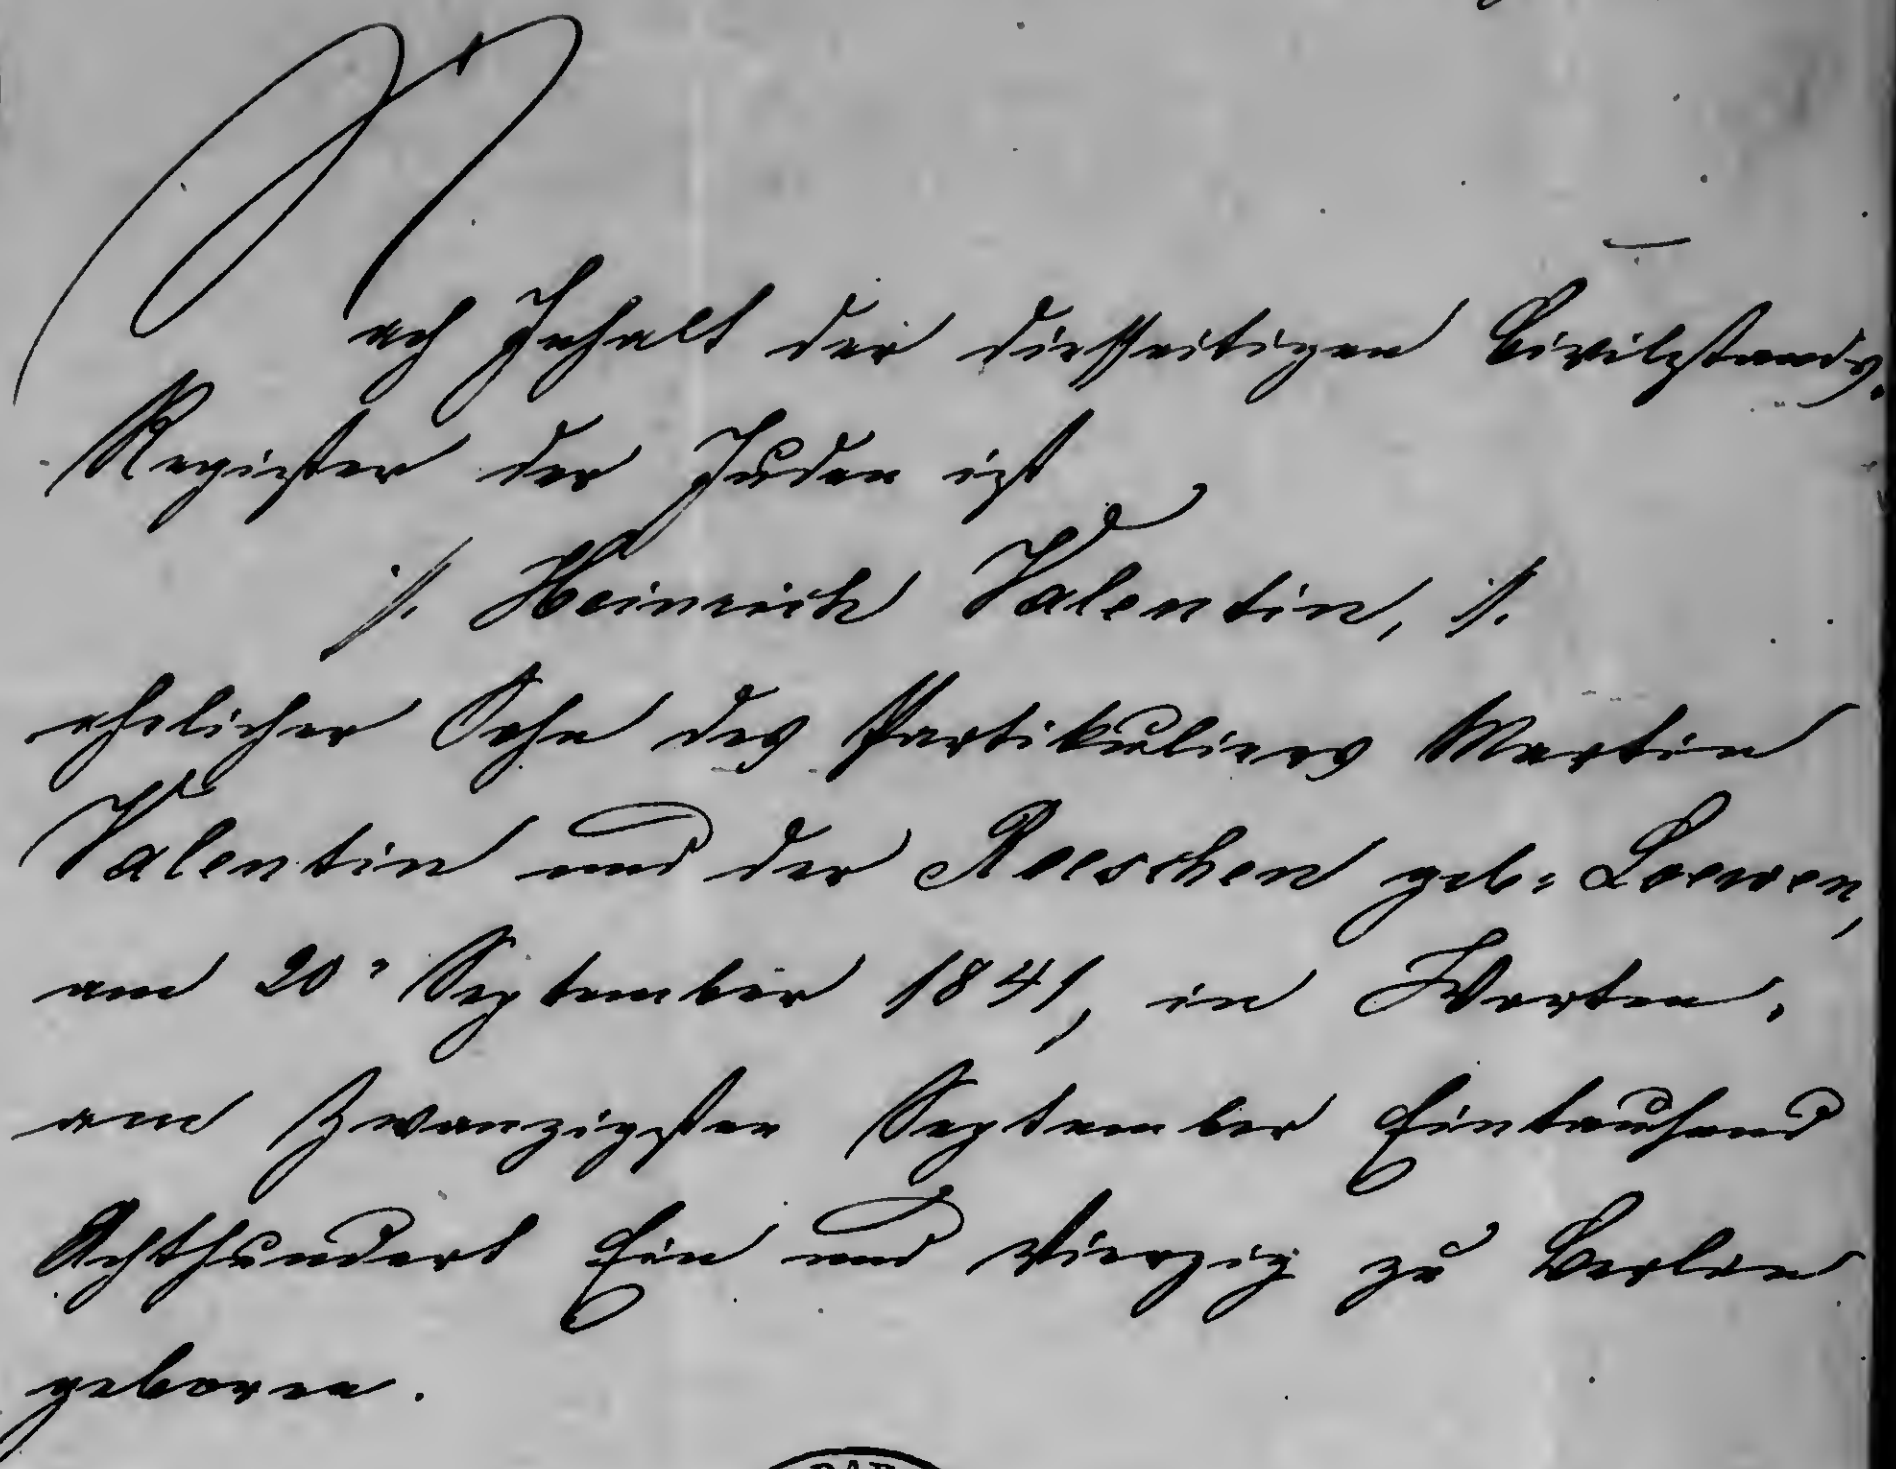 Nach Inhalt der diesseitigen Civilstands-
Register der Juden ist
./. Heinrich Valentin, ./.
ehelicher Sohn des Partikuliers Martin
Valentin und der Reeschen geb: Loewen,
am 20: September 1841, in Worten:
am Zwanzigsten September Eintausend
Achthundert Ein und Vierzig zu Berlin
geboren.